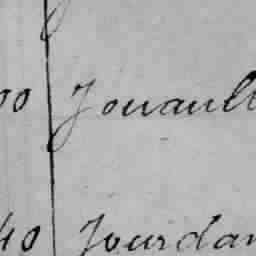 00 Jouault
40 Jourdan